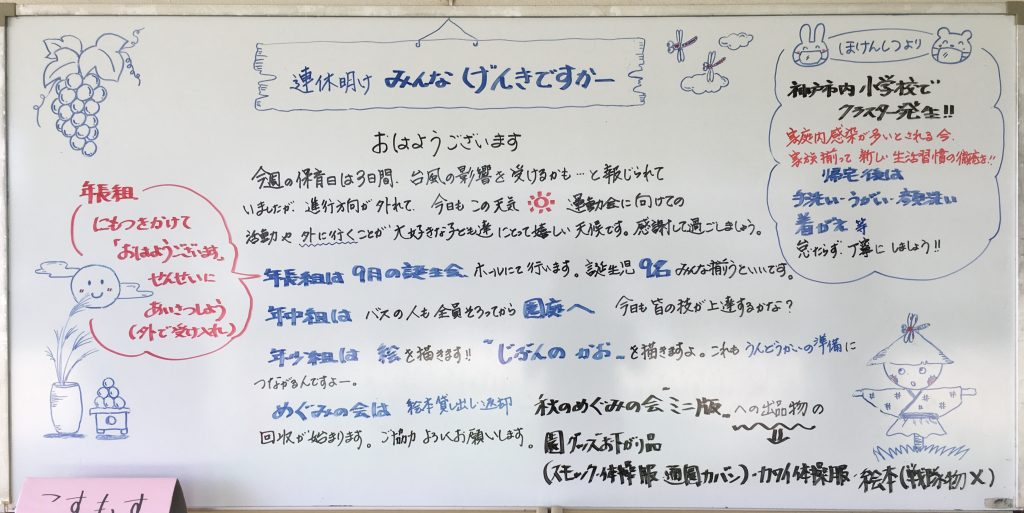 連休明け みんな げんきですかー
おはようございます
今週の保育日は3日間、台風の影響を受けるかも…と報じられて
いましたが、進行方向が外れて、今日も この天気 運動会に向けての
活動や 外に行くことが 大好きな子ども達にとって嬉しい天候です。感謝して過ごしましょう。
年長組は 9月の誕生会 ホールにて行います。誕生児 9名 みんな揃うといいです。
年中組は バスの人も 全員そろってから 園庭へ 今日も 皆の技が上達するかな？
年少組は 絵を描きます!! "じぶんの かお" を描きますよ。これも うんどうかいの準備に
つながるんですよー。
めぐみの会は 絵本貸し出し返却
回収が始まります。ご協力 よろしくお願いします。
秋のめぐみの会"ミニ版" への出品物の
園グッズお下がり品
(スモック・体操服 通園カバン)・カタイ体操服・絵本(戦隊物×)
年長組
にもつをかけて
「おはようございます」
せんせいに
あいさつしよう
(外で受け入れ)
ほけんしつより
神戸市内 小学校で
クラスター発生!!
家庭内感染が多いとされる今、
家族揃って 新しい生活習慣の徹底を!!
帰宅後は
手洗い・うがい・顔洗い
着がえ 等
怠たらず、丁寧に しましょう!!
こすもす